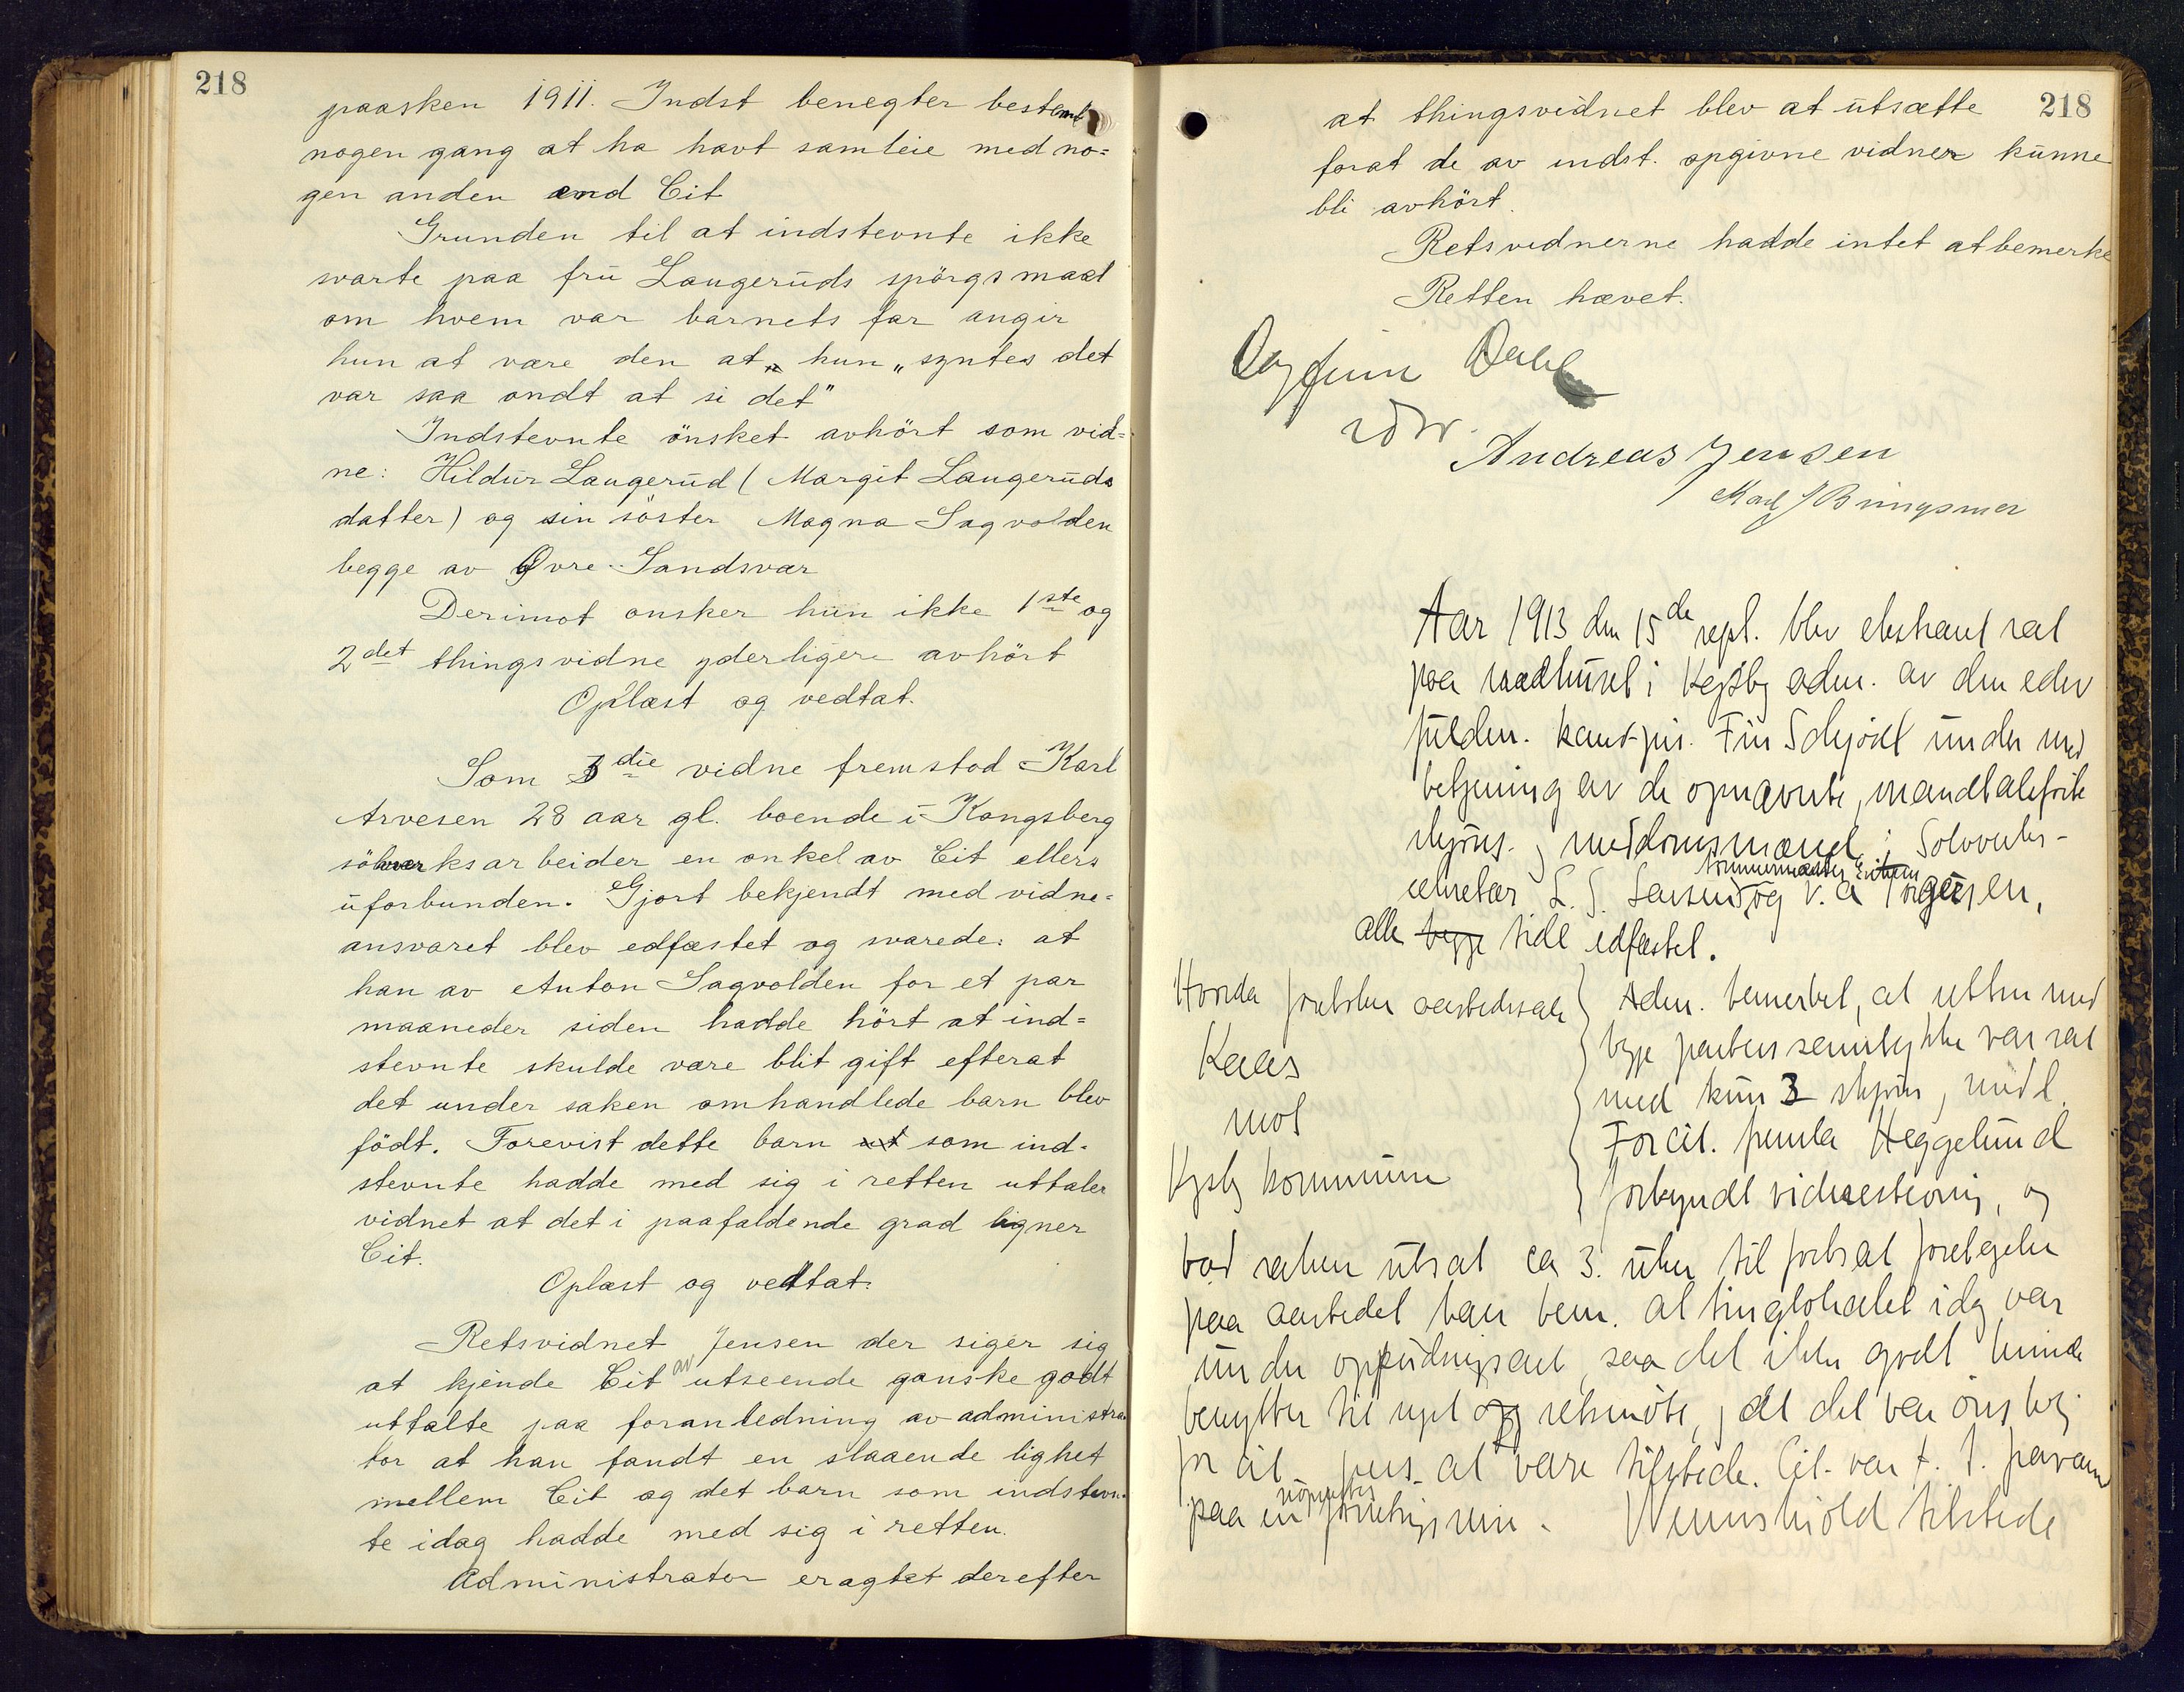 218
paasken 1911. Indst benegter bestemt
nogen gang at ha havt samleie med no=
gen anden end Cit
Grunden til at indstevnte ikke
svarte paa fru Laugeruds spörgsmaal
om hvem var barnets far angir
hun at være den at hun „syntes det
var saa ondt at si det"
Indstevnte önsket avhört som vid=
ne: Hildur Laugerud (Margit Laugeruds
datter) og sin söster Magna Sagvolden
begge av Övre Sandsvær
Derimot onsker hun ikke 1ste og
2det thingsvidne yderligere avhört
Oplæst og vedtat.
Som 3die vidne fremstod Karl
Arvesen 28 aar gl. boende i Kongsberg
sölvverksarbeider en onkel av Cit ellers
uforbunden. Gjort bekjendt med vidne=
ansvaret blev edfæstet og svarede: at
han av Anton Sagvolden for et par
maaneder siden hadde hört at ind=
stevnte skulde være blit gift efterat
det under saken omhandlede barn blev
födt. Forevist dette barn ut som ind-
stevnte hadde med sig i retten uttaler
vidnet at det i paafaldende grad ligner
Cit.
Oplæst og vedtat.
Retsvidnet Jensen der siger sig
at kjende Cit av utseende ganske godt
uttalte paa foranledning av administra
tor at han fandt en slaaende lighet
mellem Cit og det barn som indstevn-
te idag hadde med sig i retten.
Administrator eragtet derefter
218
at thingsvidnet blev at utsætte
forat de av indst. opgivne vidner kunne
bli avhört.
Retsvidnerne hadde intet at bemerke
Retten hævet.
Dagfinn Dahl
Andreas Jensen
Karl J Bringsmer
Aar 1913 den 15de sept. blev ekstraret sat
paa raadhuset i Kgsby adm. av den edsv
fuldm. Fin Schjödt under med
betjening av de opnævnte, mandtalsförte
skjöns- og meddomsmænd: Sölvverks-
sekretær L. S. Larsen, tömmermester og V. A Torgersen,
alle begge tidl edfæstet.
Hvorda foretokes aastedssak
Kaas
mot
Kgsby kommune
Adm. bemerket, at retten med
begge parters samtykke var sat
med kun 3 skjöns, medd.
For cit. Heggelund
forkyndt vidnestevning, og
bad saken utsat ca 3. uker til fortsat foretagelse
paa aastedet han bem. at tinglokalet idag var
under oppudsning, saa det ikke godt kunde
benyttes til retsmöte, at det var
for cit pers. at være tilstede. Cit. var f. t.
paa en nöpvattet Wennskiold tilstede